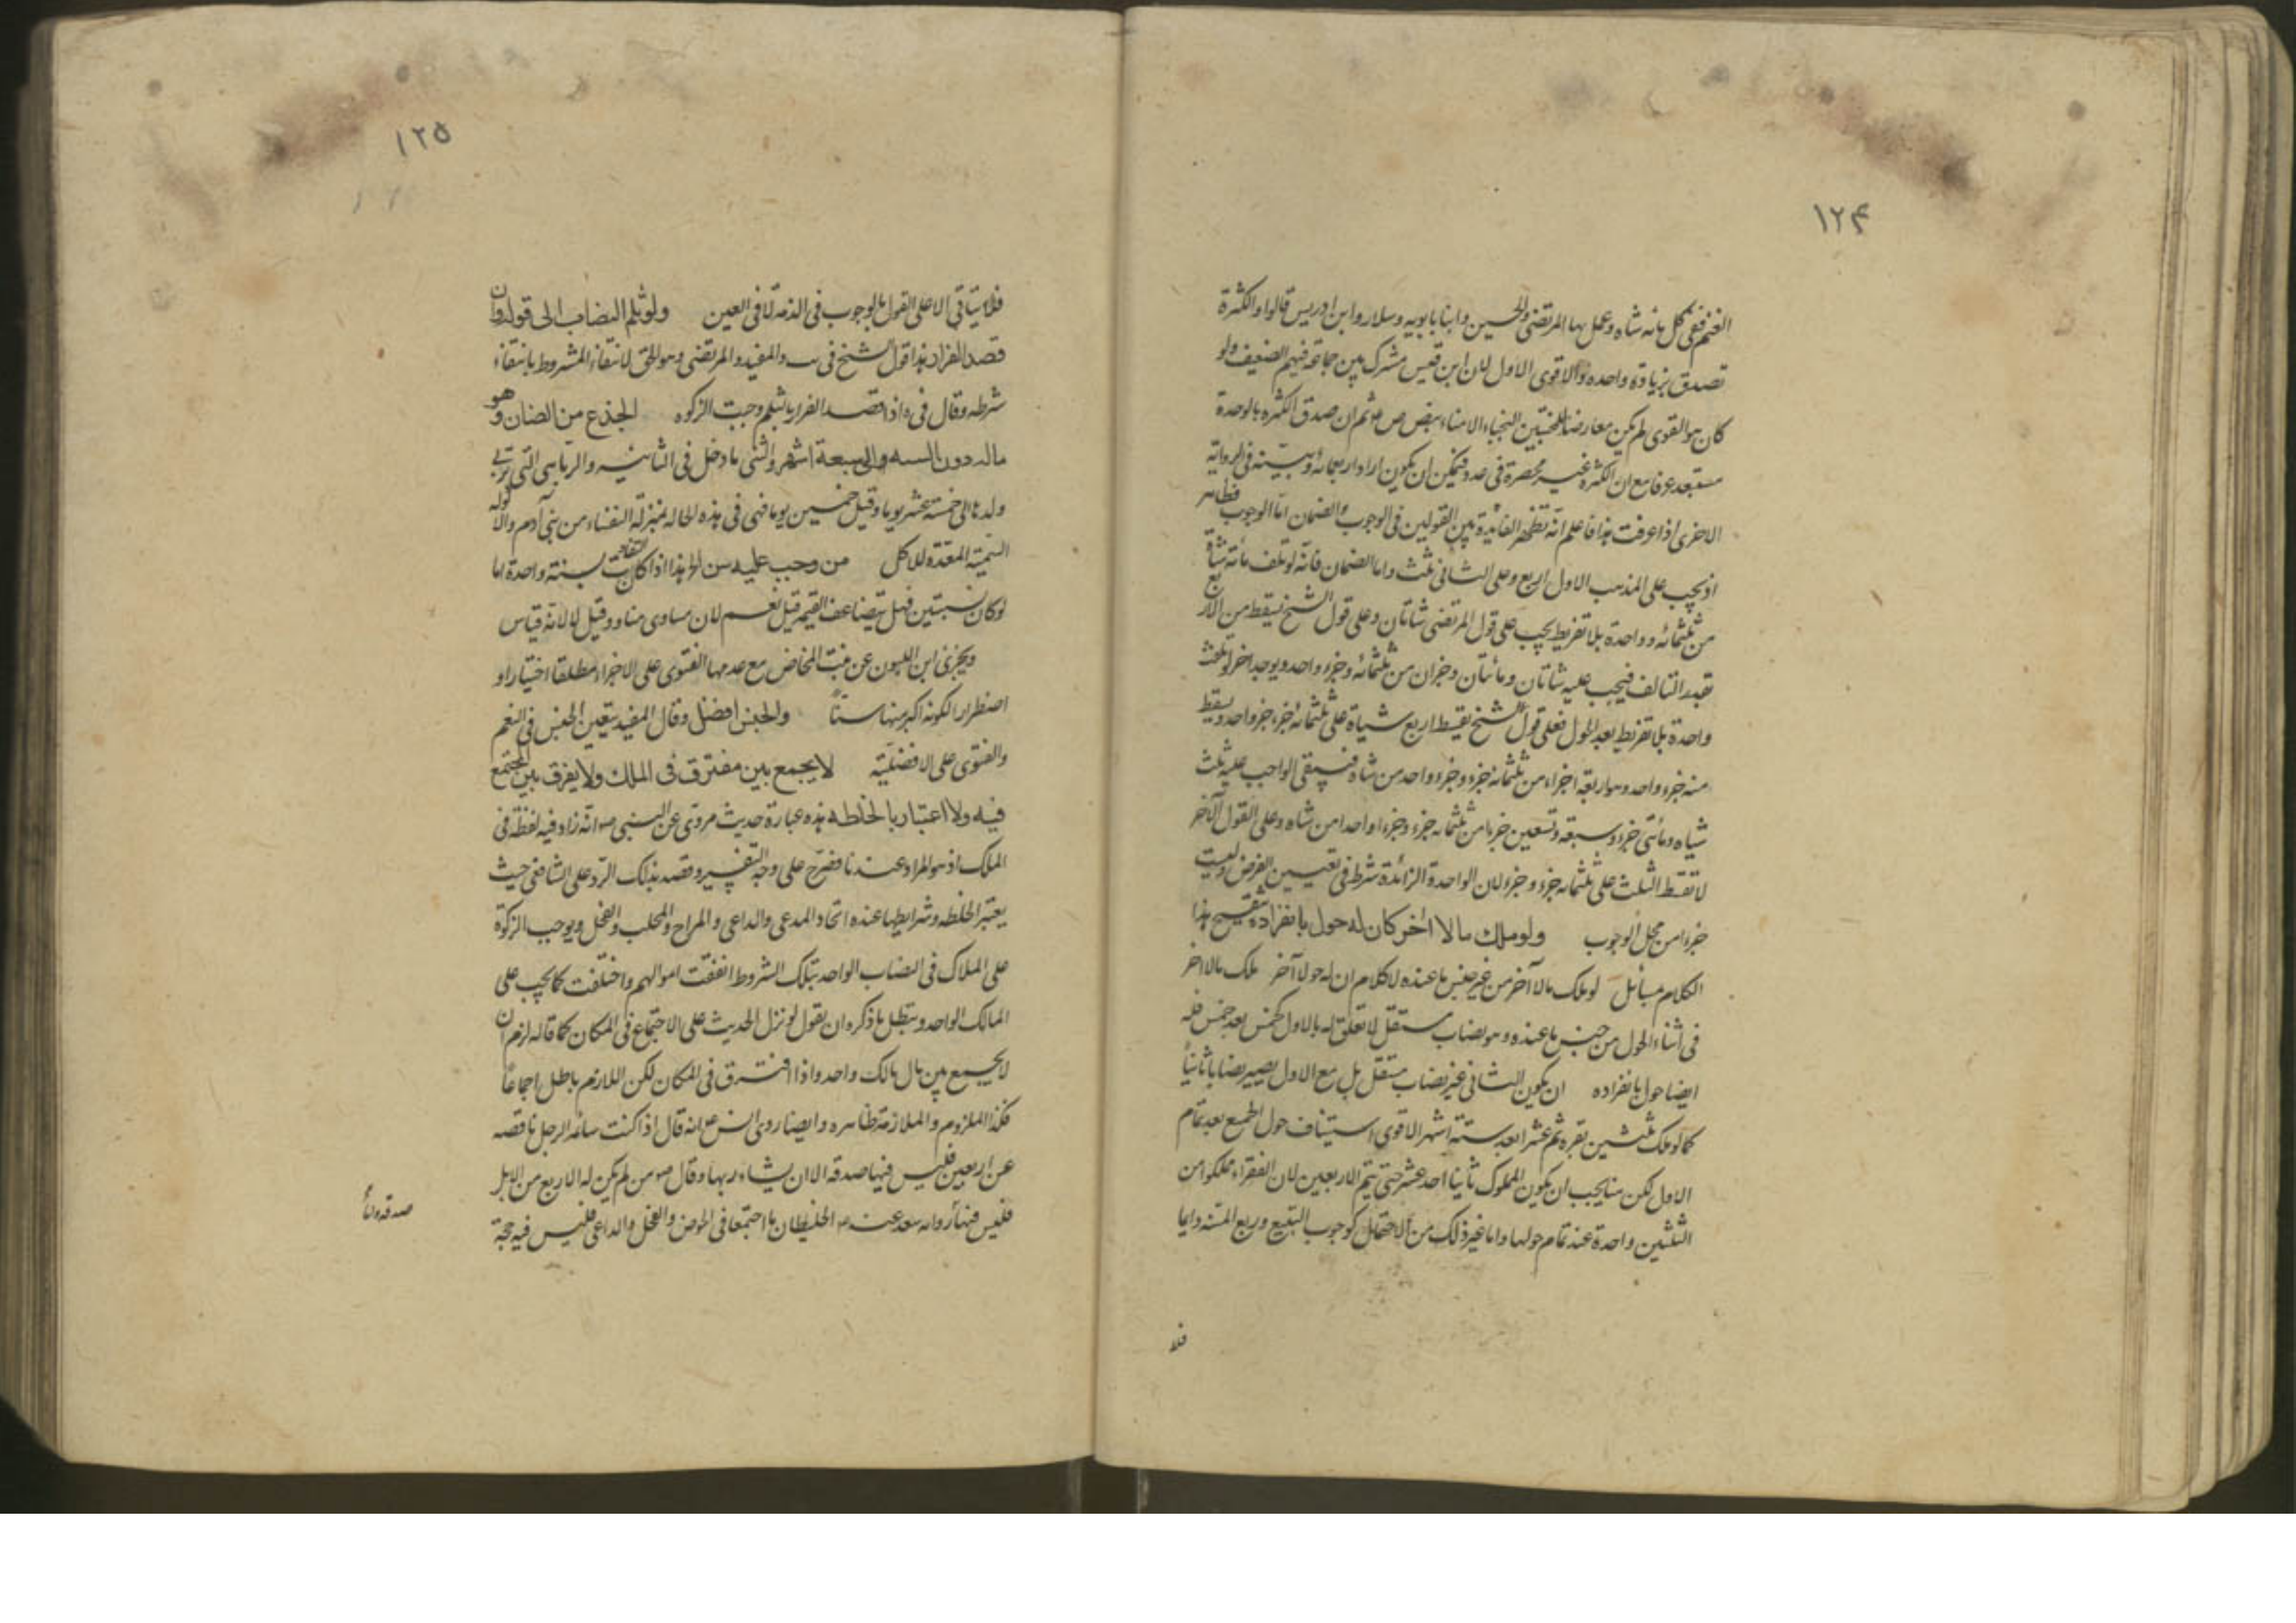 ١٢۴
الغنم ففى كل مائه شاه وعمل بها المرتضى والحسين وابنا بابويه وسلار وابن ادريس قالوا والكثرة
تصدق بزيادة واحده والاقوى الاول لان ابن قيس مشرك بين جماعة فيهم الضعيف ولو
كان هو القوى لم يكن معارضا للمخبتين النجباء الامناء بنص ص ع ثم ان صدق الكثره بالوحدة
مستبعد عرفا مع ان الكثره غير منحصرة فى عدد فيمكن ان يكون اراد اربعمائة وبينته فى الرواية
الاخرى اذا عرفت هذا فاعلم انه تظهر الفايدة بين القولين فى الوجوب والضمان اما الوجوب فظاهر
اذ يجب على المذهب الاول اربع وعلى الثانى ثلث واما الضمان فانه لو تلف مائة شاة
من ثلثمائه وواحدة بلا تفريط يجب على قول المرتضى شاتان وعلى قول الشيخ يسقط من الاربع
بقدر التالف فيجب عليه شاتان ومائتان وجزان من ثلثمائه وجزء واحد ويوجد اخر لو تلفت
واحدة بلا تفريط بعد الحول فعلى قول الشيخ يقسط اربع شياة على ثلثمائه جزء وجزء واحد ويسقط
منه جزء واحد وهو اربعة اجزاء من ثلثمائه جزء وجزء واحد من شاه فيبقى الواجب عليه ثلث
شياه ومائتى جزء وسبعة وتسعين جزءا من ثلثمائه جزء وجزءا واحدا من شاه وعلى القول الآخر
لا تقسط الثلث على ثلثمائه جزء وجزء لان الواحدة الزائدة شرط فى تعيين الفرض وليست
جزءا من محل الوجوب ولو ملك مالا اخر كان له حول بانفراده تنقيح هذا
الكلام مسائل لو ملك مالا آخر من غير جنس ما عنده لا كلام ان له حولا آخر ملك مالا اخر
فى اثناء الحول من جنس ما عنده وهو نصاب مستقل لا تعلق له بالاول كخمس بعد خمس فله
ايضا حول بانفراده ان يكون الثانى غير نصاب مستقل بل مع الاول يصير نصابا ثانيا
كما لو ملك ثلثين بقره ثم عشرا بعد ستة اشهر الاقوى استيناف حول الجميع بعد تمام
الاول لكن هنا يجب ان يكون المملوك ثانيا احد عشر حتى يتم الاربعين لان الفقراء ملكوا من
الثلثين واحدة عند تمام حولها واما غير ذلك من الاحتمال كوجوب التبيع وربع المسنه دايما
فلا
١٢٥
فلا يتاتى الا على القول بالوجوب فى الذمة لا فى العين ولو ثلم النصاب الى قوله وان
قصد الفرار هذا قول الشيخ فى ب والمفيد والمرتضى وهو الحق لانتفاء المشروط بانتفاء
شرطه وقال فى اذا قصد الفرار بالثلم وجبت الزكوه الجذع من الضان وهو
ماله دون السنه والى سبعة اشهر والثنى ما دخل فى الثانيه والربا هى التى تربى
ولدها الى خمسة عشر يوما وقيل خمسين يوما فهى فى هذه الحاله بمنزلة النفساء من بنى آدم والاكوله
السمينة المعدة للاكل من وجب عليه سن الخ هذا اذا كانت التفاوت بسنة واحدة اما
لو كان بسنتين فهل يتضاعف القيم قيل نعم لان مساوى مساو وقيل لا لانه قياس
ويجزى ابن اللبون عن بنت المخاض مع عدمها الفتوى على الاجزاء مطلقا اختيارا و
اضطرارا لكونه اكبر منها سنا والجنس افضل وقال المفيد يتعين الجنس فى النعم
والفتوى على الافضلية لا يجمع بين مفترق فى الملك ولا يفرق بين المجتمع
فيه ولا اعتبار بالخلطه هذه عبارة حديث مروى عن النبى ص انه زاد فيه لفظة فى
الملك اذ هو المراد عندنا فصرح على وجه التفسير وقصد بذلك الرد على الشافعى حيث
يعتبر الخلطه وشرايطها عنده اتحاد المرعى والراعى والمراح والمحلب والفحل ويوجب الزكوة
على الملاك فى النصاب الواحد بتلك الشروط اتفقت اموالهم واختلفت كما يجب على
المالك الواحد ويبطل ما ذكره ان نقول لو نزل الحديث على الاجتماع فى المكان كما قاله لزم ان
لا يجمع بين مال مالك واحد واذا افترق فى المكان لكن اللازم باطل اجماعا
فكذا الملزوم والملازمة ظاهره وايضا روى انس عنه انه قال اذا كنت سائمه الرجل ناقصه
عن اربعين فليس فيها صدقه الا ان يشاء ربها وقال ص من لم يكن له الا اربع من الابل
فليس فيها رواه سعد عنه ص الخليطان ما اجتمعا فى الحوض والفحل والراعى فليس فيه حجة